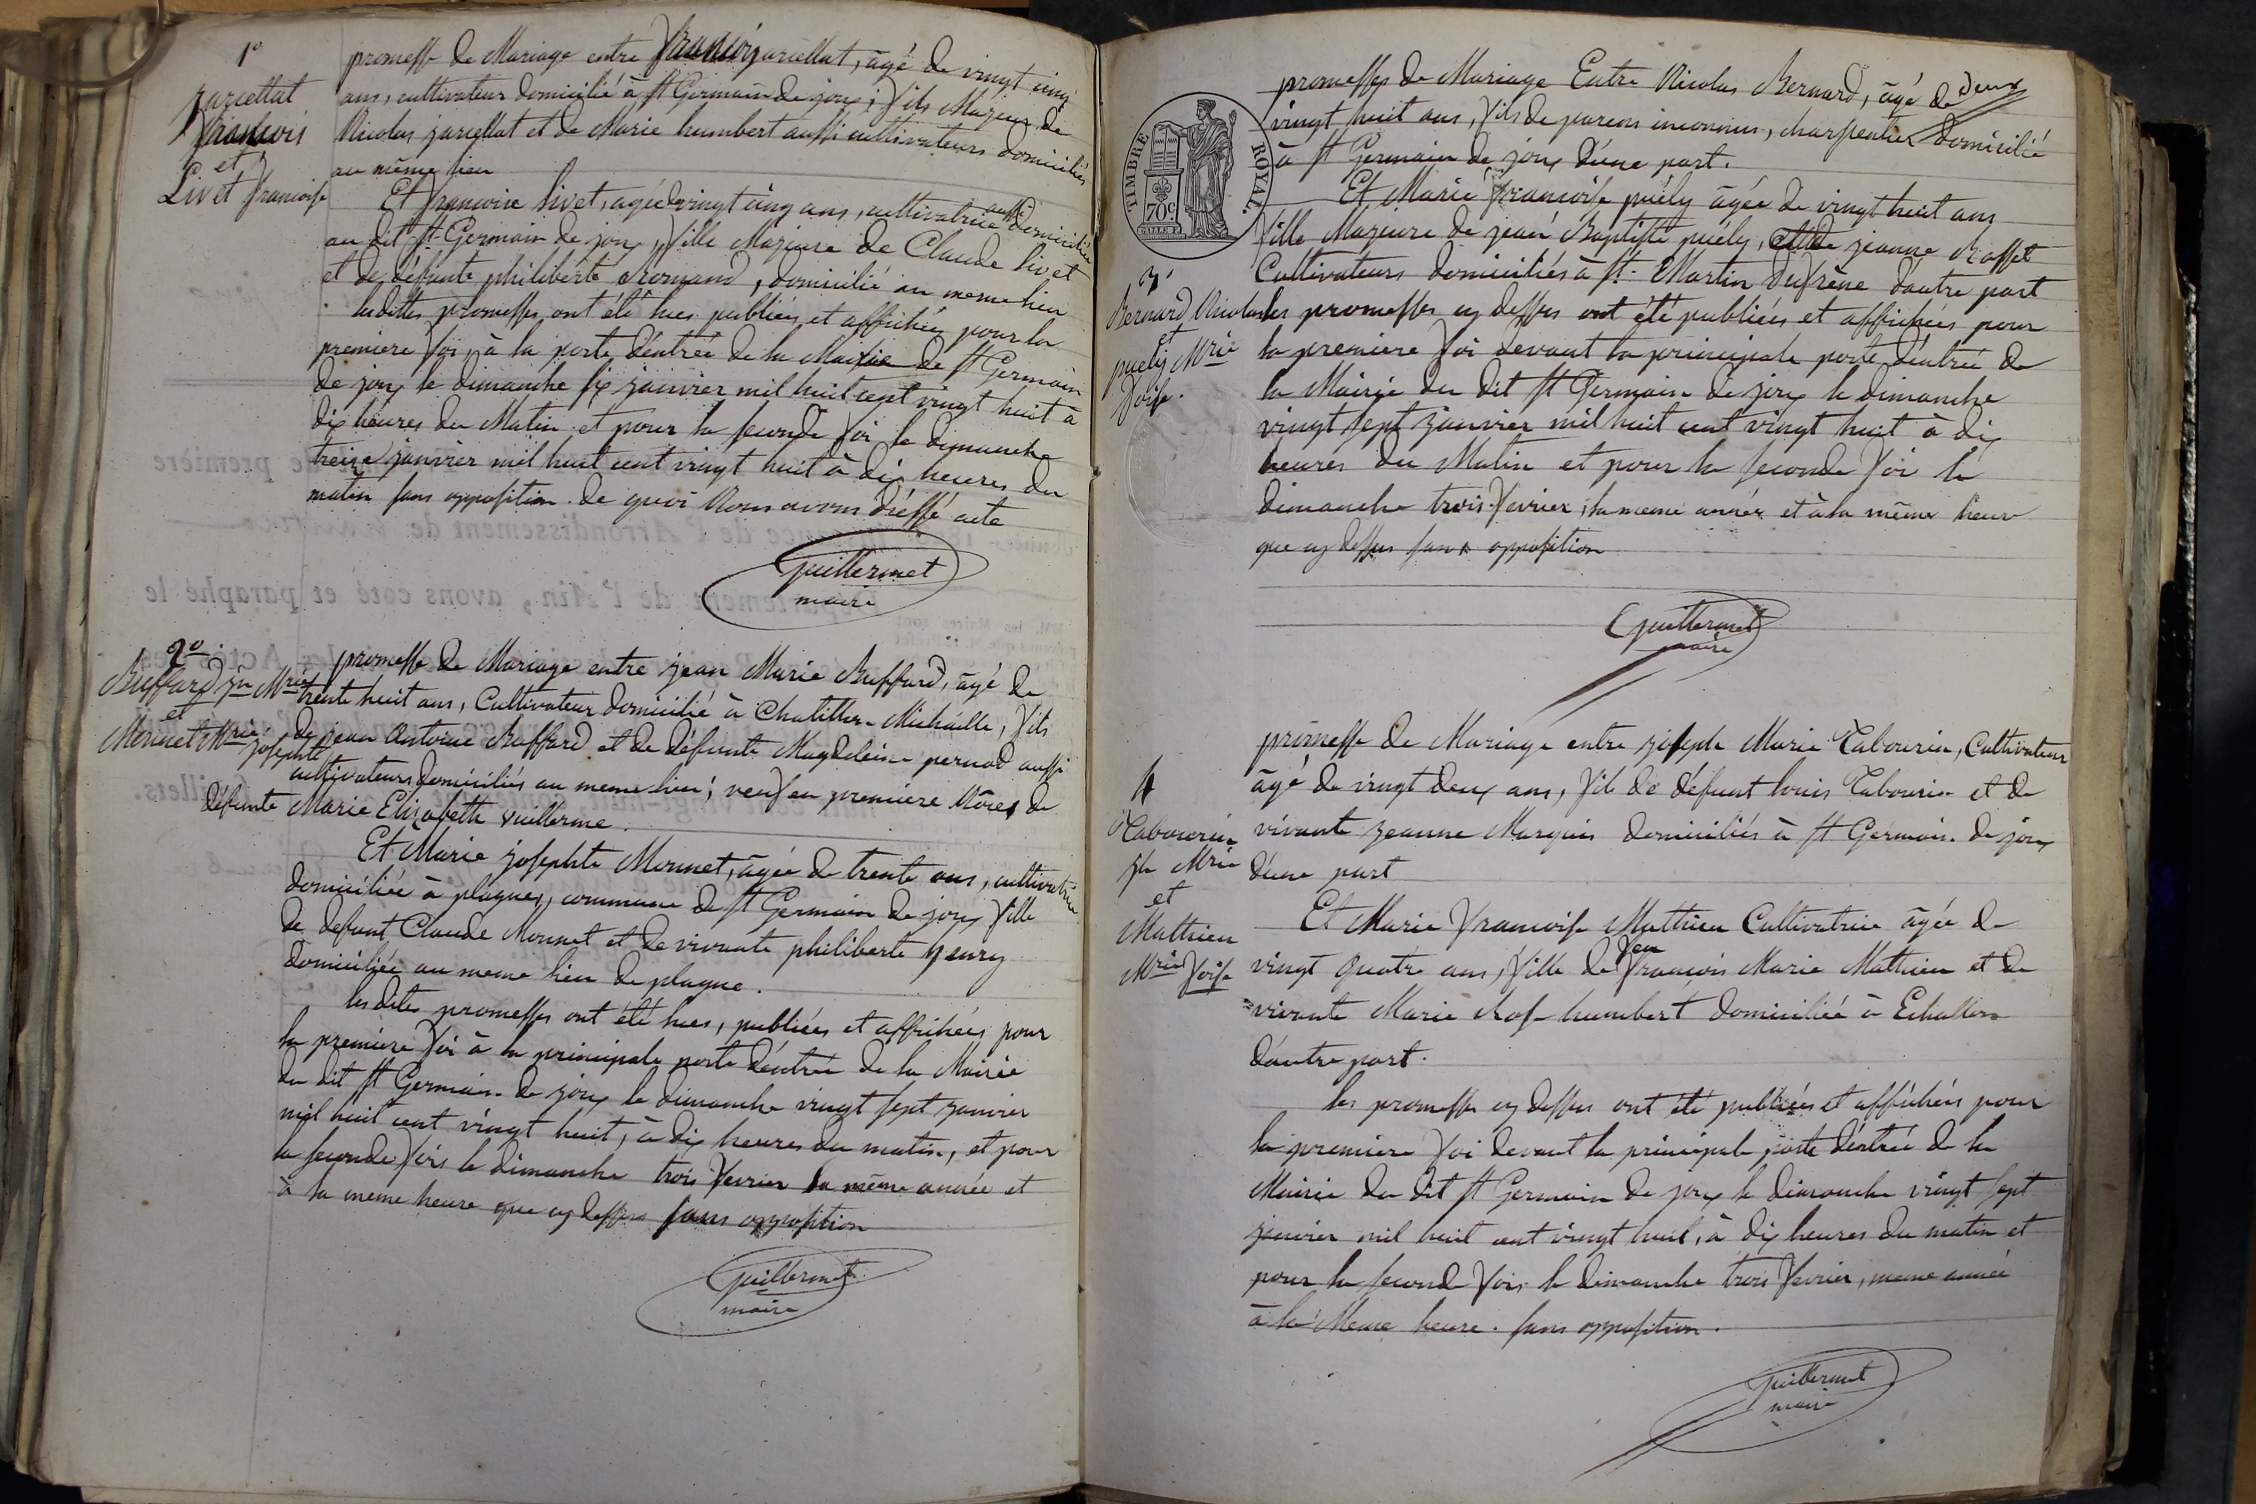 1º
jarcellat
françois
et
Livet françoise
promesse de Mariage entre françois jarcellat, âgé de vingt cinq
ans, cultivateur domicilié à St Germain de joux ; fils Majeur de
Nicolas jarcellat et de Marie humbert aussi cultivateurs domiciliés
au même lieu
Et françoise livet, agée vingt cinq ans, cultivatrice aussi domiciliée
au dit St Germain de joux, fille Majeure de Claude livet
et de défunte philiberte Romand, domicilié au meme lieu
lesdittes promesses ont été lues publiées et affichées pour la
premiere foi, à la porte d'éntrée de la Mairie de St Germain
de joux le dimanche six janvier mil huit cent vingt huit à
dix heures du Matin et pour la seconde foi le dimanche
treize janvier mil huit cent vingt huit à dix heures du
matin sans opposition. de quoi Nous avons dréssé acte
Guillermet
maire
2º
Buffard jn Mrie
et
Monnet Mrie
josephte
promesse de Mariage entre jean Marie Buffard, âgé de
trente huit ans, Cultivateur domicilié à Chatillon-Michaille, fils
de jean Antoine Buffard et de défunte Magdeleine pernod aussi
cultivateurs domiciliés au meme lieu ; veuf en premiere Nôces de
défunte Marie Elizabette vuillerme.
Et Marie josephte Monnet, âgée de trente ans, cultivatrice
domiciliée à plagnes, commune de St Germain de joux fille
de defunt Claude Monnet et de vivante philiberte henry
domiciliée au meme lieu de plagne.
les dites promesses ont été lues, publiées et affichées pour
la premiere foi à la principale porte d'éntrée de la Mairie
du dit St Germain de joux le dimanche vingt sept janvier
mil huit cent vingt huit, à dix heures du matin, et pour
la seconde fois le dimanche trois fevrier la même année et
à la meme heure que cy dessus sans opposition
Guillermet
maire
TIMBRE ROYAL.
70c
3º
Bernard Nicolas
et
puely Mrie
foise.
promesses de Mariage Entre Nicolas Bernard, âgé de deux
vingt huit ans, fils de parens inconnus, charpentier domicilié
à St Germain de joux d'une part.
Et Marie françoise puély âgée de vingt huit ans
fille Majeure de jean Baptiste puély, et de jeanne Raffet
Cultivateurs domiciliés à St Martin Dufrène d'autre part
les promesses cy dessus ont été publiées et affichées pour
la premiere foi devant la principale porte d'éntrée de
la Mairie du dit St Germain de joux le dimanche
vingt sept janvier mil huit cent vingt huit à dix
heures du Matin et pour la seconde foi le
dimanche trois fevrier, la meme année et à la même heure
que cy dessus sans opposition
Guillermet
maire
4
Tabourin
jh Mrie
et
Mathieu
Mrie foise
promesse de Mariage entre joseph Marie Tabourin, Cultivateur
âgé de vingt deux ans, fils de défunt louis Tabourin et de
vivante jeanne Marquis domiciliés à St Germain de joux
d'une part
Et Marie françoise Mathieu Cultivatrice âgée de
vingt quatre ans, fille de feu françois Marie Mathieu et de
vivante Marie Rose humbert domiciliée à Echallon
d'autre part.
les promesses cy dessus ont été publiées et affichées pour
la premiere foi devant la principale porte d'éntrée de la
Mairie du dit St Germain de joux le dimanche vingt sept
janvier mil huit cent vingt huit, à dix heures du matin et
pour la second fois le dimanche trois fevrier, meme année
à la Meme heure. sans opposition.
Guillermet
maire